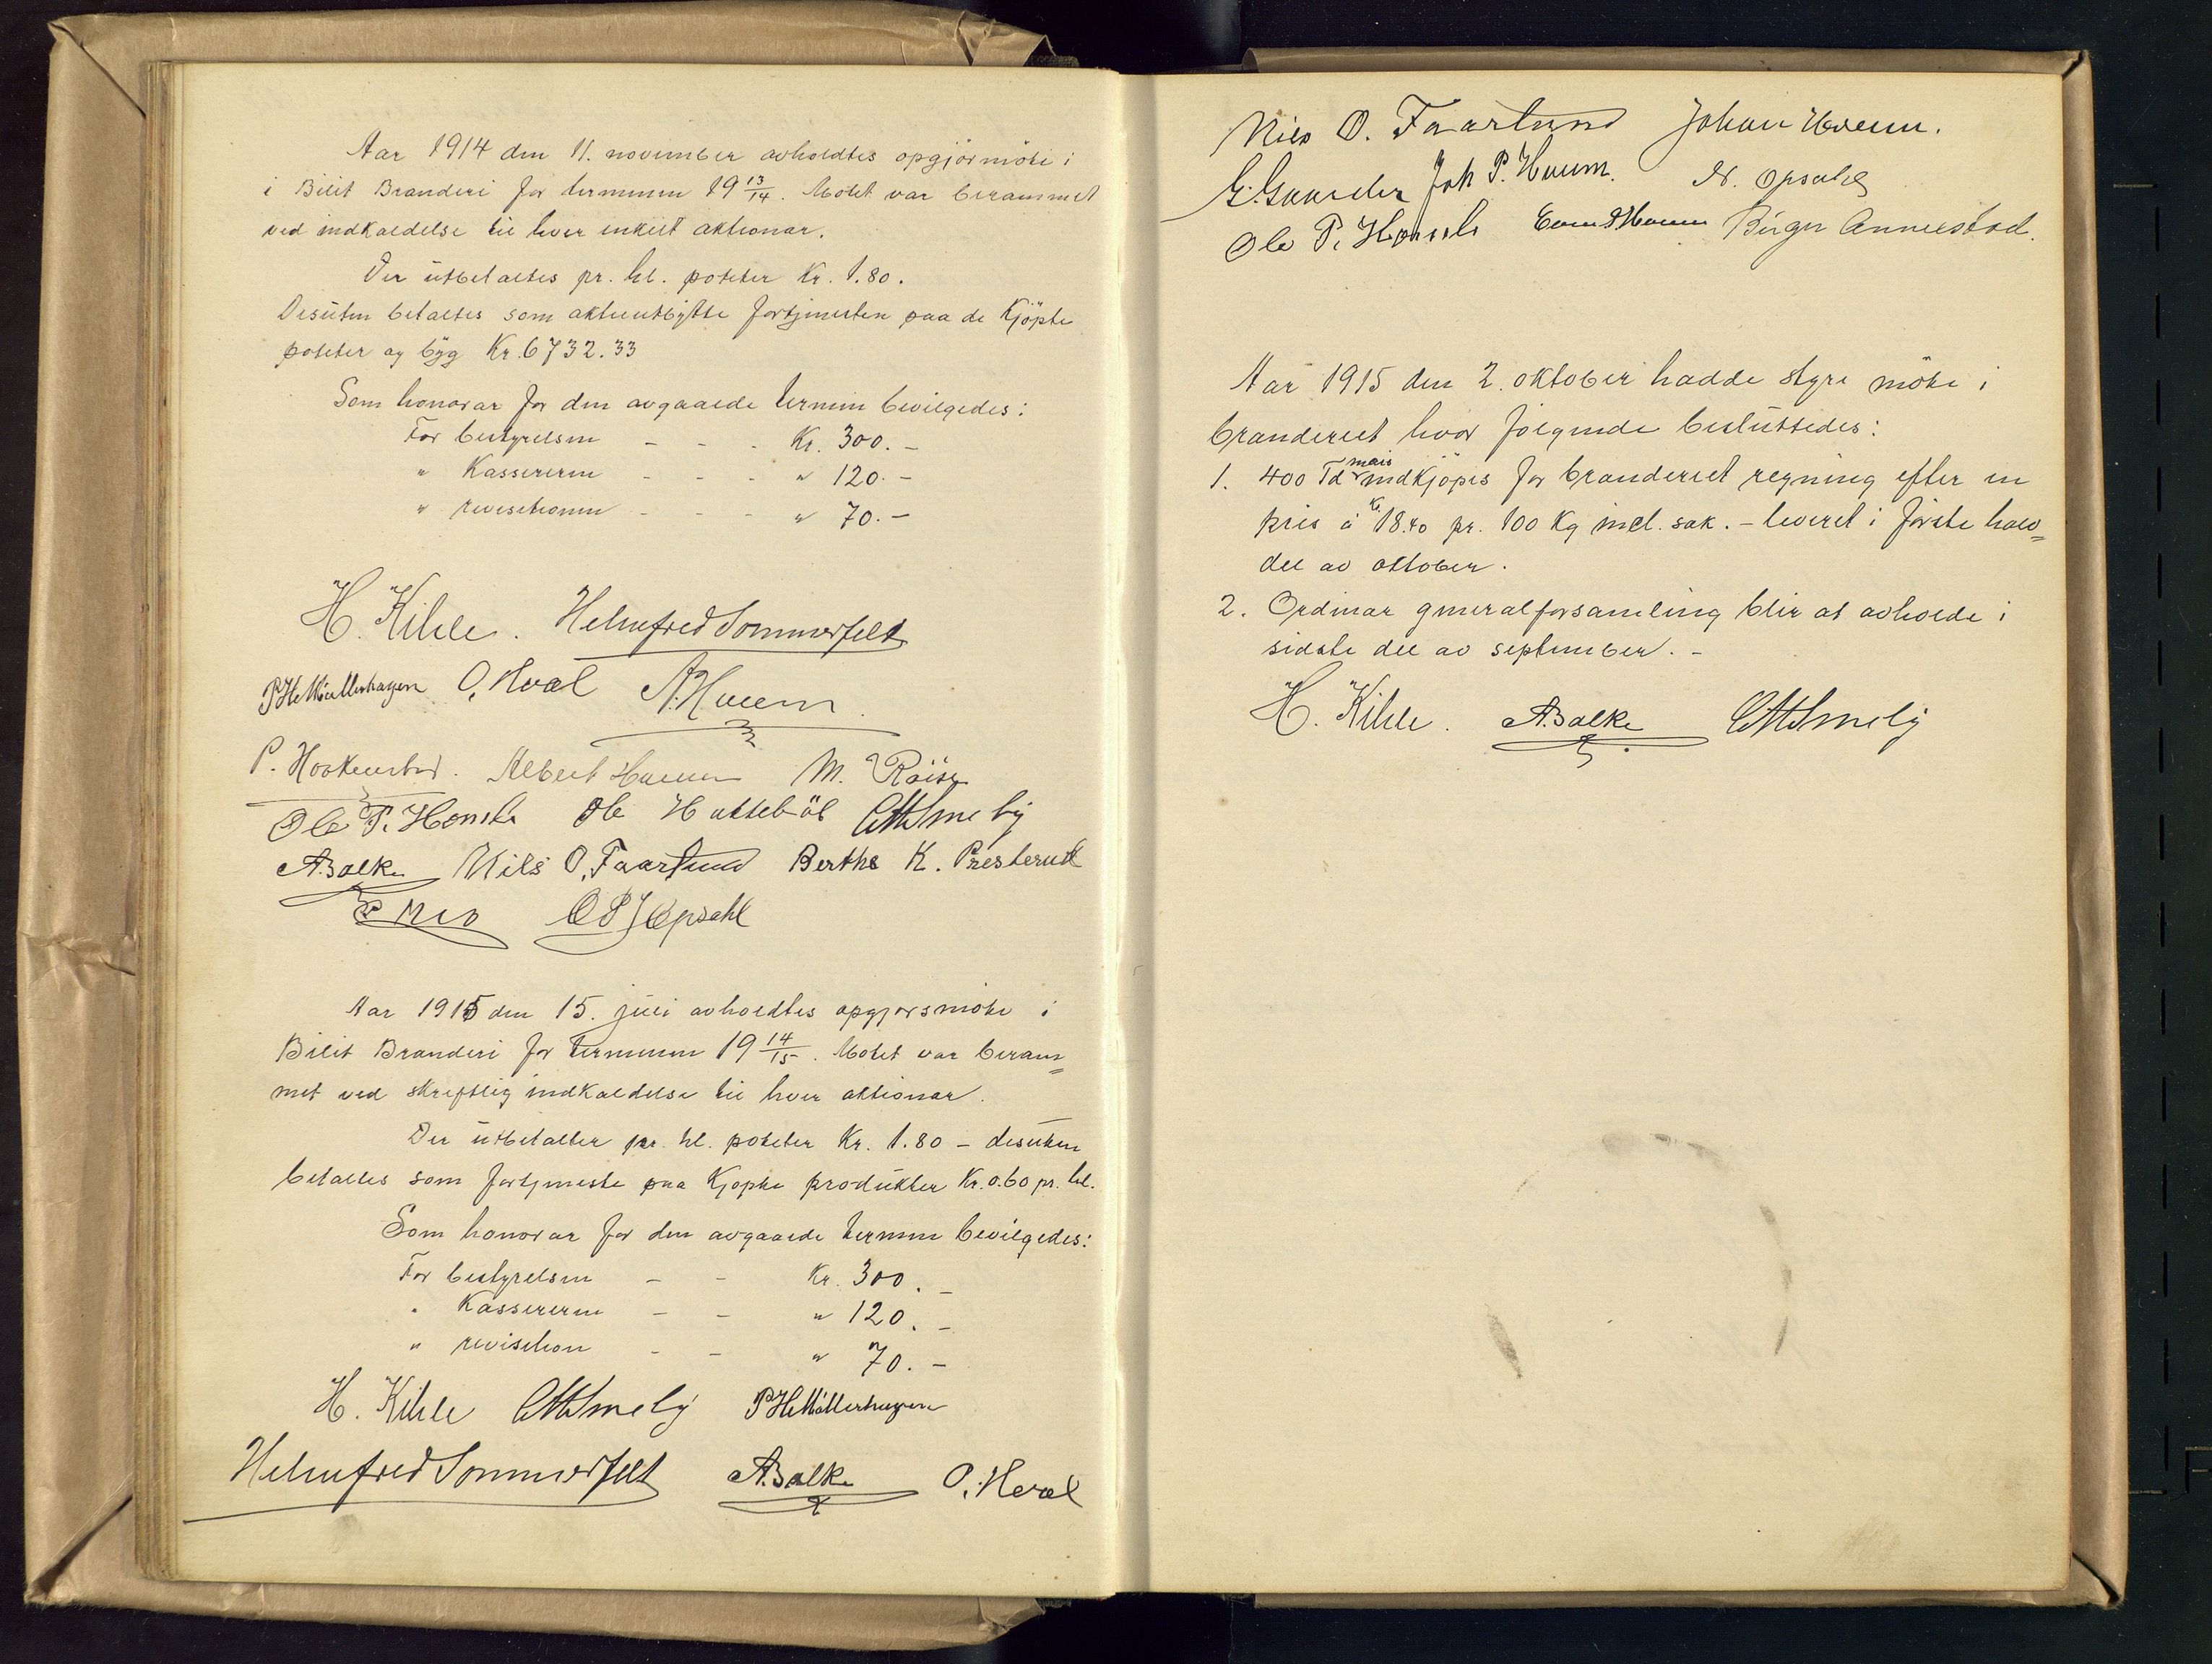 Aar 1914 den 11. november avholdtes opgjörmöte i
i Bilit Brænderi for terminen 19 13/14. Mötet var berammet
ved indkaldelse til hver enkelt aktionær.
Der utbetaltes pr. hl. poteter Kr. 1.80.
Desuten betaltes som aktieutbytte fortjenesten paa de kjöpte
poteter og byg Kr. 6732.33
Som honorar for den avgaaede termin bevilgedes:
For bestyrelsen - - - Kr. 300.-
" Kassereren - - - " 120.-
" revisionen - - - " 70.-
H. Kihle. Helmfred Sommerfelt
P H Möllerhagen O. Hval A. Huem
P. Hoskenstad. Albert Huem M. Röise
Ole P. Honsle Ole Hatteböl Smeby
A Balke Nils O. Faarlund Berthe K. Presterud
Opsahl
Aar 1915 den 15. juli avholdtes opgjørsmöte i
Bilit Brænderi for terminen 19 14/15. Mötet var beram=
met ved skriftlig indkaldelse til hver aktionær.
Der utbetalter pr. hl. poteter Kr. 1.80 - desuten
betaltes som fortjeneste paa kjøpte produkter Kr. 0.60 pr. hl.
Som honorar for den avgaaede termin bevilgedes:
For bestyrelsen - - Kr. 300.-
" Kassereren - - " 120.-
" revision - - " 70.-
H. Kihle Smeby P H Möllerhagen
Helmfred Sommerfelt A Balke O. Hval
Nils O. Faarlund Johan Huem.
G. Gaarder Joh P. Huem. N. Opsahl
Ole P. Honsle Huem Birger Annexstad.
Aar 1915 den 2. oktober hadde styre möte i
brænderiet hvor følgende besluttedes:
1. 400 Td mais indkjøpes for brænderiet regning efter en
pris á kr. 18.40 pr. 100 Kg incl. sæk. - leveret i første halv=
del av oktober.
2. Ordinær generalforsamling blir at avholde i
sidste del av september. -
H. Kihle. A Balke Smeby